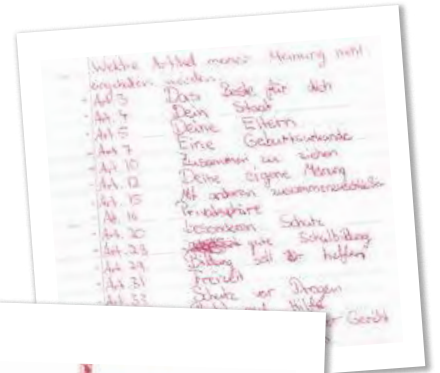 Welche Artikel meiner Meinung nicht
eingehalten werden.
- Art 3 Das Beste für dich
- Art. 4 Dein Staat
- Art 5 Deine Eltern
- Art 7 Eine Geburtsurkunde
- Art 10 Zusammen zu ziehen
- Art. 12 Deine eigene Meinung
- Art. 15 Mit anderen
- Art. 16 Privatsphäre
- Art. 20 besonderen Schutz
- Art. 28 gute Schulbildung
- Art. 29 Bildung soll dir helfen
- Art 31 Freizeit
- Art 33 Schutz vor Drogen
Hilfe
Gericht